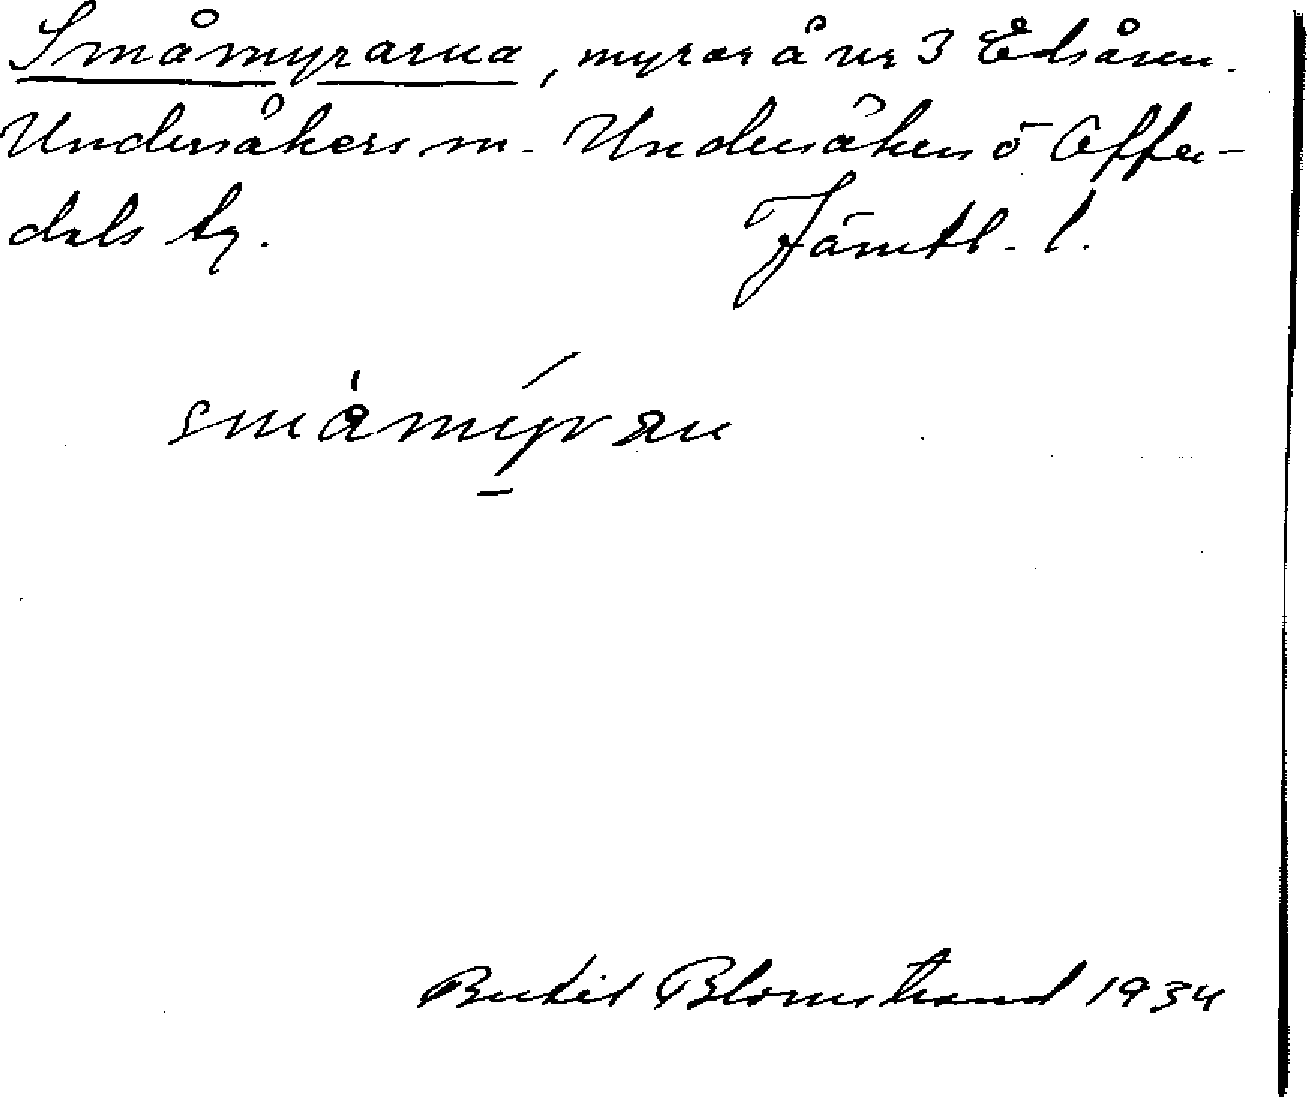 Småmyrarna, myrar å nr 3 Edsåsen.
Undersåkers sn. Undersåkers o Offer-
dals tg. Jämtl. l.
småmyran
Bertil Blomstrand 1934